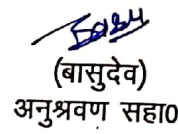 (बासुदेव)
अनुश्रवण सहा०